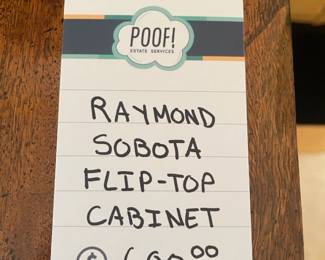 POOF!
ESTATE SERVICES
RAYMOND
SOBOTA
FLIP-TOP
CABINET
$